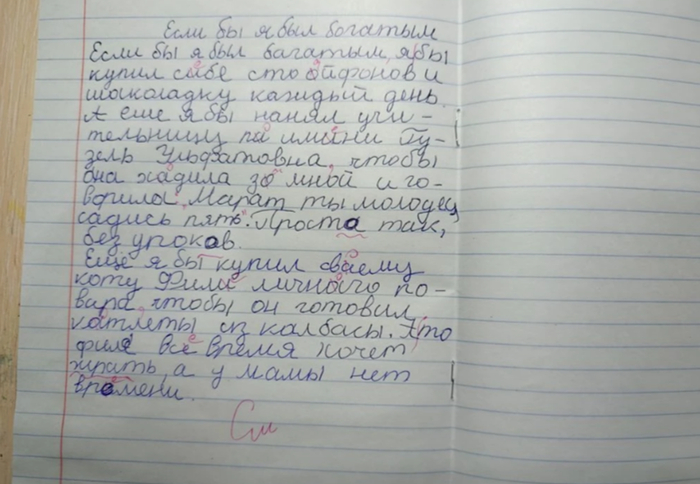 Если бы я был богатым
Если бы я был багатым, я бы
купил сабе сто айфонов и
шоколадку каждый день.
А еше я бы нанял учи-
тельницу па имини Гу-
зель Ульфатовна, чтобы
она хадила зо мной и го-
ворила „Марат ты молодец
садись пять". Проста так,
без уроков.
Еще я бы купил сваему
коту Филе личного по-
вара, чтобы он готовил
катлеты из калбасы. Ато
филя все время хочет
жрать, а у мамы нет
времени.
См